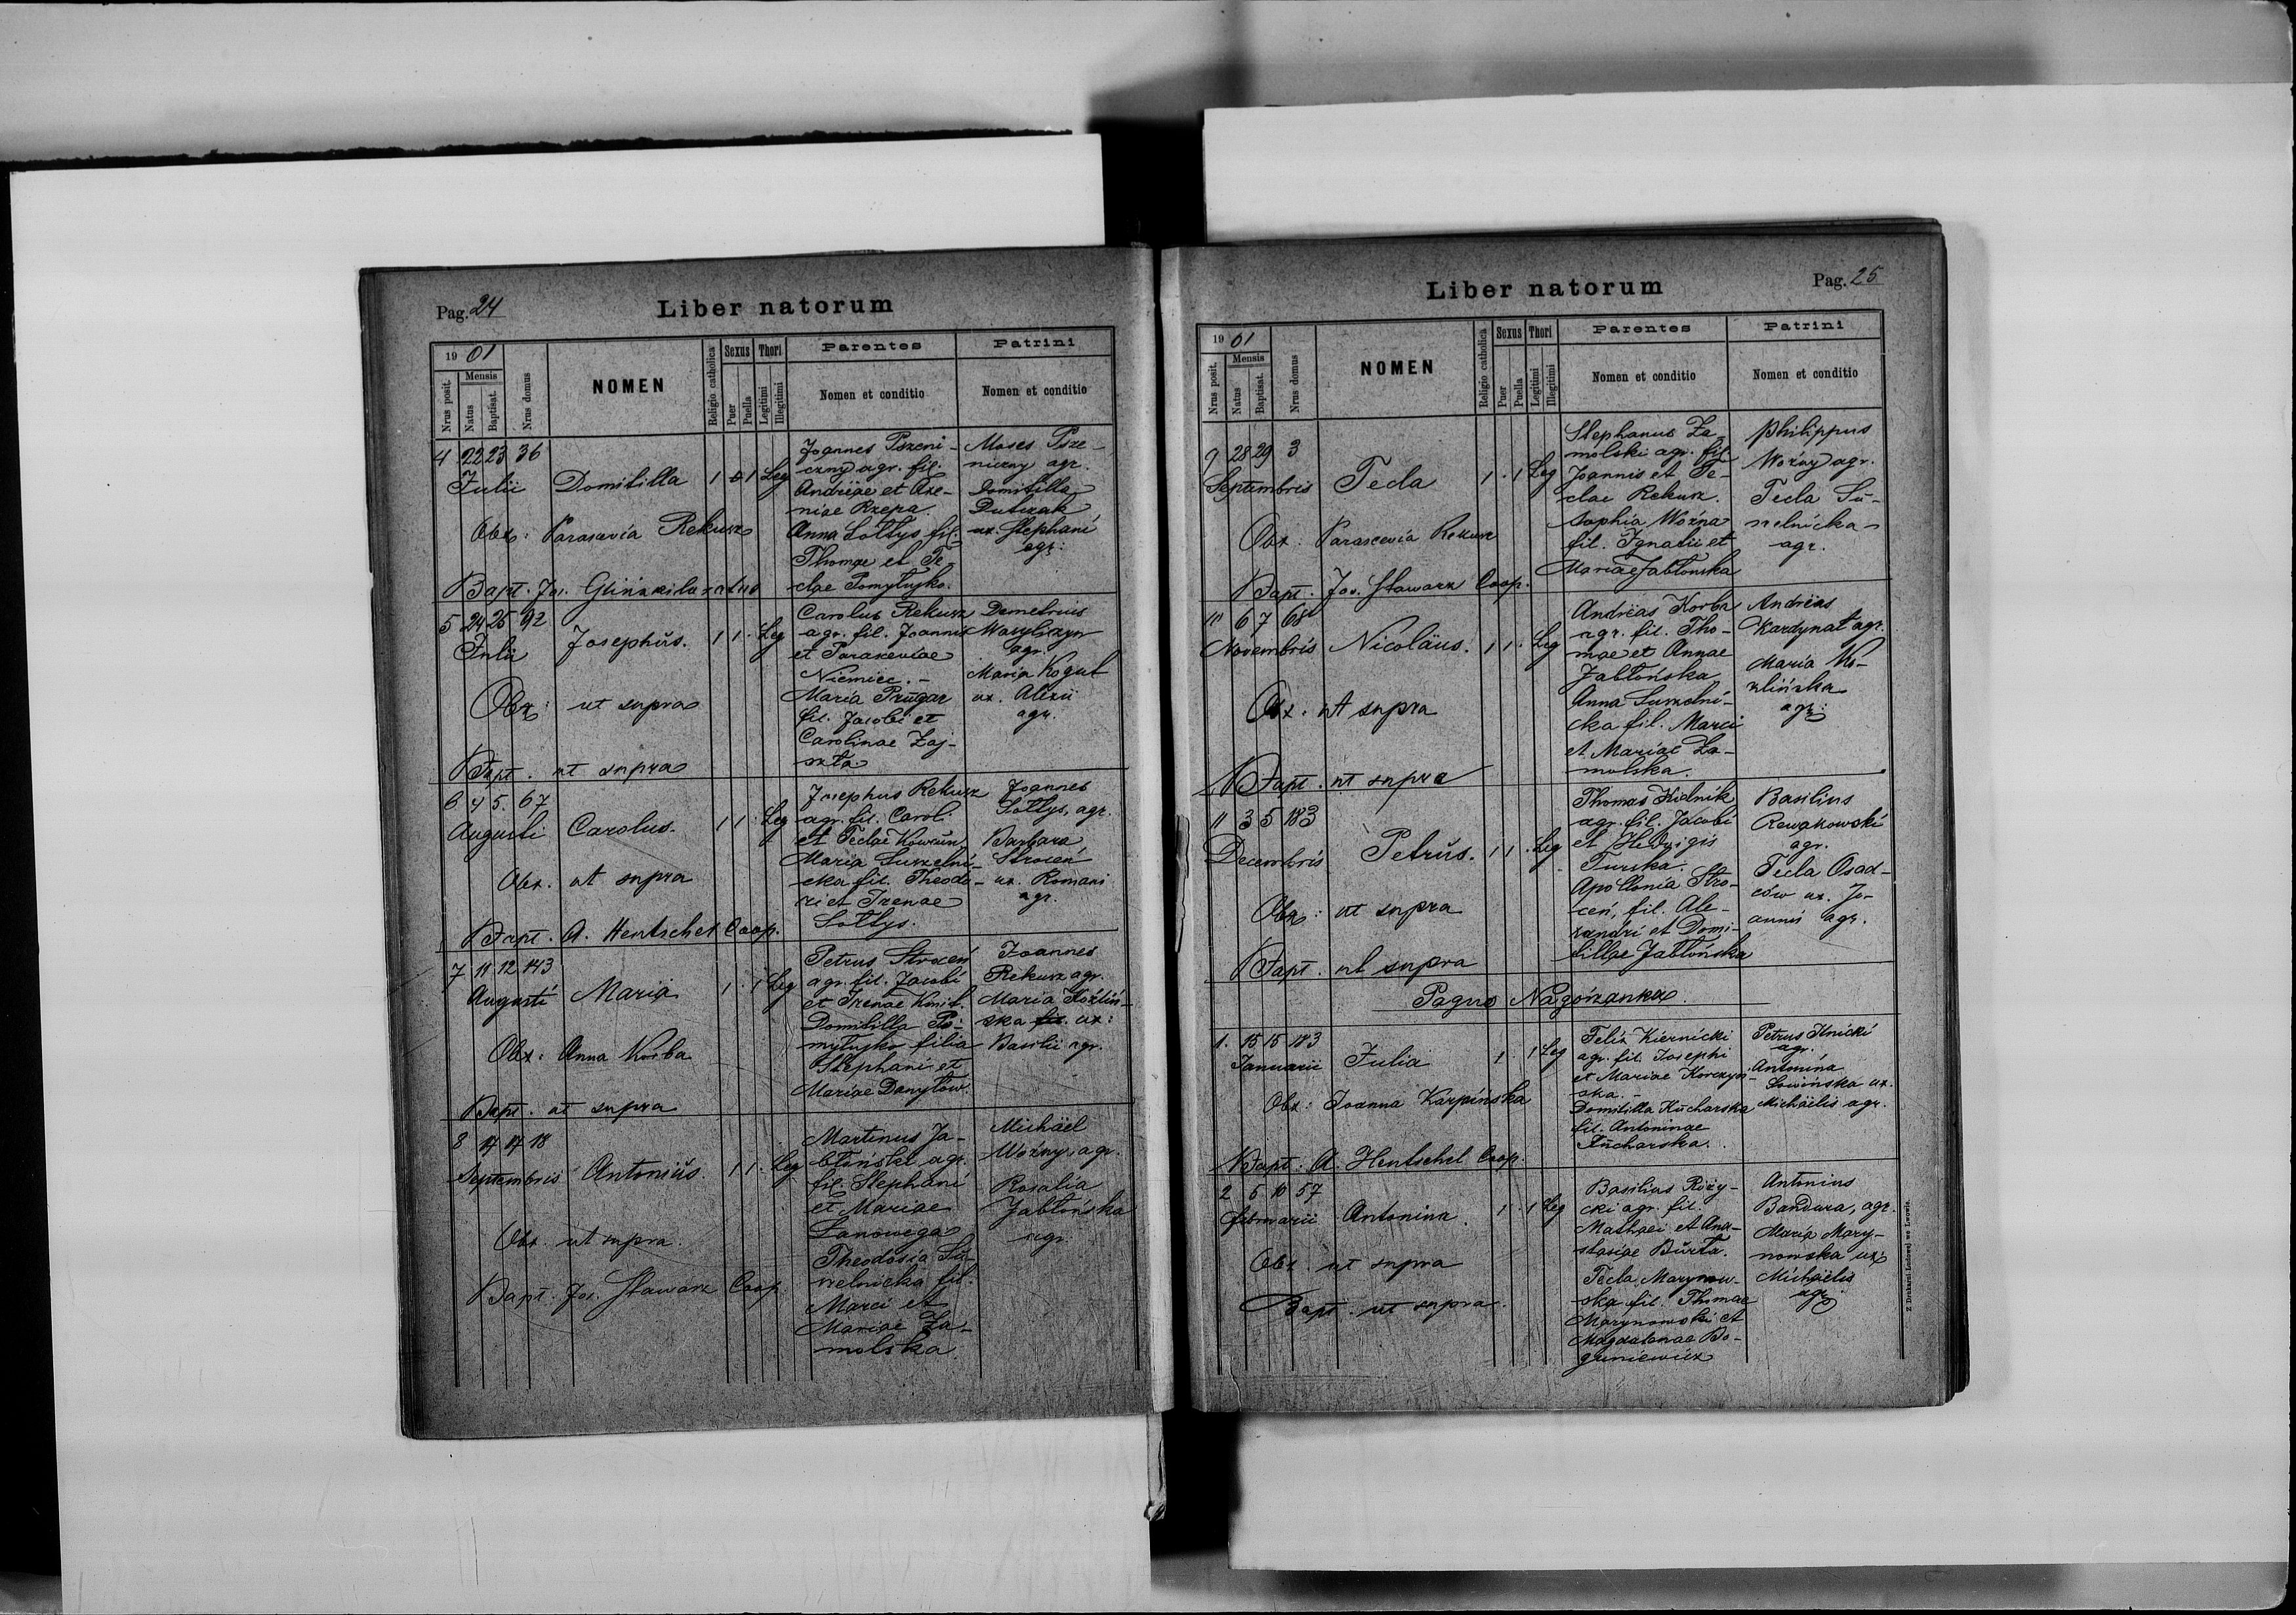 Pag. 24
Liber natorum
1901
Nrus posit.
Mensis
Natus
Baptisat.
Nrus domus
NOMEN
Religio catholica
Sexus
Puer
Puella
Thori
Legitimi
Illegitimi
Parentes
Nomen et conditio
Patrini
Nomen et conditio
4 22 23 36
Julii
Domitilla
1 1 Leg
Obx: Parascevia Rekusz
Bapt. Jos.
Joannes Pszeni-
czny agr. fil.
Andreae et Axe-
niae Rzepa.
Anna Sołtys fil.
Thomae et Te-
clae Pomytujko.
Moses Psze-
niczny agr.
Domitilla
Dutczak
ux. Stephani
agr:
5 24 25 92
Julii
Josephus.
1 1 . Leg
Obx: ut supra
Bapt. ut supra
Carolus Rekusz
agr. fil. Joannis
et Parasceviae
Niemiec. -
Maria Prugar
fil. Jacobi et
Carolinae Zaj-
Demetrius
Wasyliszyn
agr.
Maria Kogut
ux. Alexii
agr.
6 4 5. 67
Augusti
Carolus.
1 1 . Leg
Obx. ut supra
Bapt. A. Hentschel Coop.
Josephus Rekusz
agr. fil. Caroli
et Teclae Kowcun.
Maria Suszelni-
cka fil. Theodo-
ri et Irenae
Sołtys.
Joannes
Sołtys, agr.
Barbara
Stroceń
ux. Romani
agr.
7 11 12 143
Augusti
Maria
1 . 1 Leg
Obx: Anna Korba
Bapt. ut supra
Petrus Stroceń
agr. fil. Jacobi
et Irenae
Domitilla Po-
mytujko filia
Stephani et
Mariae Danyłow.
Joannes
Rekusz agr.
Maria Koźliń-
ska fil. ux:
Basilii agr.
8 17 17 18
Septembris
Antonius.
1 1 . Leg
Obx. ut supra.
Bapt. Jos. Stawarz Coop.
Martinus Ja-
błoński agr.
fil. Stephani
et Mariae
Łanowega
Theodosia Su-
szelnicka fil.
Marci et
Mariae Za-
molska
Michäel
Woźny, agr.
Rosalia
Jabłońska
agr.
Liber natorum
Pag. 25
1901
Nrus posit.
Mensis
Natus
Baptisat.
Nrus domus
NOMEN
Religio catholica
Sexus
Puer
Puella
Thori
Legitimi
Illegitimi
Parentes
Nomen et conditio
Patrini
Nomen et conditio
9 28 29 3
Septembris
Tecla
1 . 1 Leg
Obx: Parascevia Rekusz
Bapt. Jos. Stawarz Coop.
Stephanus Za-
molski agr. fil
Joannis et Te-
clae Rekusz.
Sophia Woźna
fil. Ignatii et
Mariae Jabłonska
Philippus
Woźny agr.
Tecla Su-
szelnicka
agr.
6 7
Novembris
Nicoläus.
1 1 . Leg
Obx. ut supra
Bapt. ut supra
Andreas Korba
agr. fil. Tho-
mae et Annae
Jabłońska
Anna Suszelni-
cka fil. Marci
et Mariae Za-
molska.
Andreas
Kardynał agr.
Maria Ko-
zlińska
agr:
11 3 5 183
Decembris
Petrus.
1 1 . Leg
Obx: ut supra
Bapt. ut supra
Thomas Kidnik
agr. fil. Jacobi
et Hedvigis
Turska.
Apollonia Stro-
ceń, fil. Ale-
xandri et Domi-
tillae Jabłońska
Basilius
Rewakowski
agr.
Tecla Osad-
ców ux. Jo-
annis agr.
Pagus Nagórzanka.
1. 15 15 183
Januarii
Julia
1 . 1 Leg
Obx: Joanna Karpińska
Bapt: A. Hentschel Coop.
Felix Kiernicki
agr. fil. Josephi
et Mariae Korczyń-
ska. -
Domitilla Kucharska
fil. Antoninae
Kucharska.
Petrus Ilnicki
agr.
Antonina
Sowińska ux.
Michäelis agr.
2 5 10 57
Februarii
Antonina.
1 . 1 Leg
Obx. ut supra
Bapt. ut supra.
Basilius Rózy-
cki agr. fil.
Mathaei et Ana-
stasiae Burta.
Tecla Marynow-
ska fil. Thomae
Marynowski et
Magdalenae Bo-
guniewicz
Antonius
Bandura, agr.
Maria Mary-
nowska ux:
Michäelis
agr.
Z Drukarni Ludowej we Lwowie.